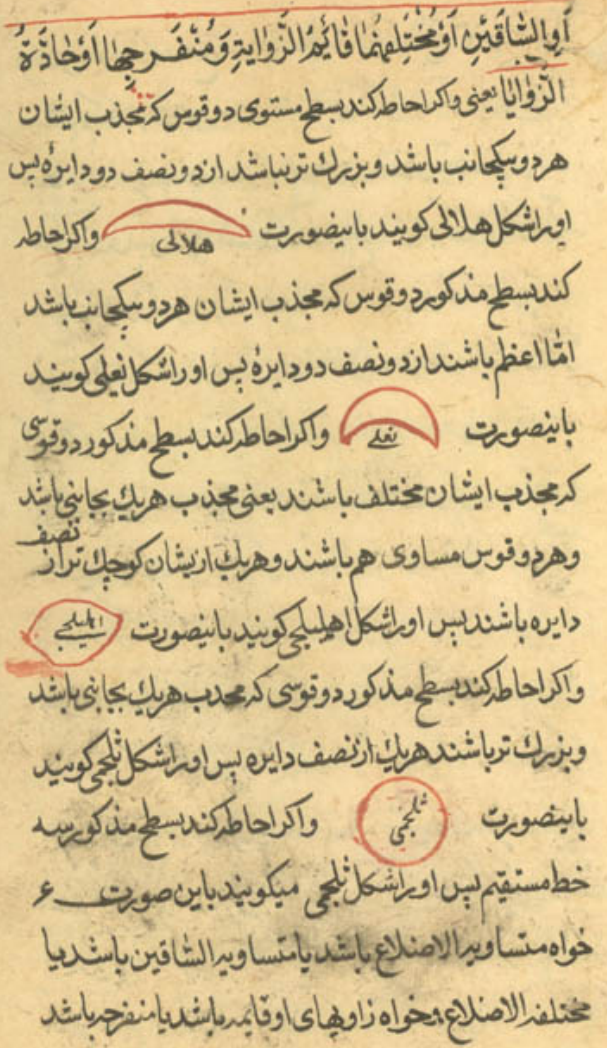 أَوِ السَّاقَيْنِ أَوْ مُخْتَلِفُهُمَا قَائِمُ الزَّوَايَةِ وَمُنْفَرِجِهَا أَوْ حَادَّةُ
الزَّوَايَا یعنی واکر احاطه کند بسطح مستوی دو قوس که مجذب ایشان
هر دو بیکجانب باشد و بزرك تر نباشد از دو نصف دو دایرهٔ پس
او را شکل هلالی کویند باینصورت هلالی واکر احاطه
کند بسطح مذکور دو قوس که مجذب ایشان هر دو بیکجانب باشد
امّا اعظم باشند از دو نصف دو دایرهٔ پس او را شکل نعلی کویند
باینصورت نعلے واکر احاطه کند بسطح مذکور دو قوسی
که مجذب ایشان مختلف باشند یعنی مجذب هریك بجانبی باشد
وهر دو قوس مساوی هم باشند و هریك از یشان کوچك تر از نصف
دایره باشند پس او را شکل اهلیلجی کویند باینصورت اهلیلجے
واکر احاطه کند بسطح مذکور دو قوسی که محدب هریك بجانبی باشد
وبزرك تر باشند هریك از نصف دایره پس او را شکل ثلجمی کویند
باینصورت ثلجمی واکر احاطه کند بسطح مذکور سه
خط مستقیم پس او را شکل ثلجمی میکویند باین صورت ع
خواه متساویه الاضلاع باشد یا متساویه الساقین باشد یا
مختلفه الاضلاع وخواه زاویهای او قایمه باشد یا منفرجه باشد